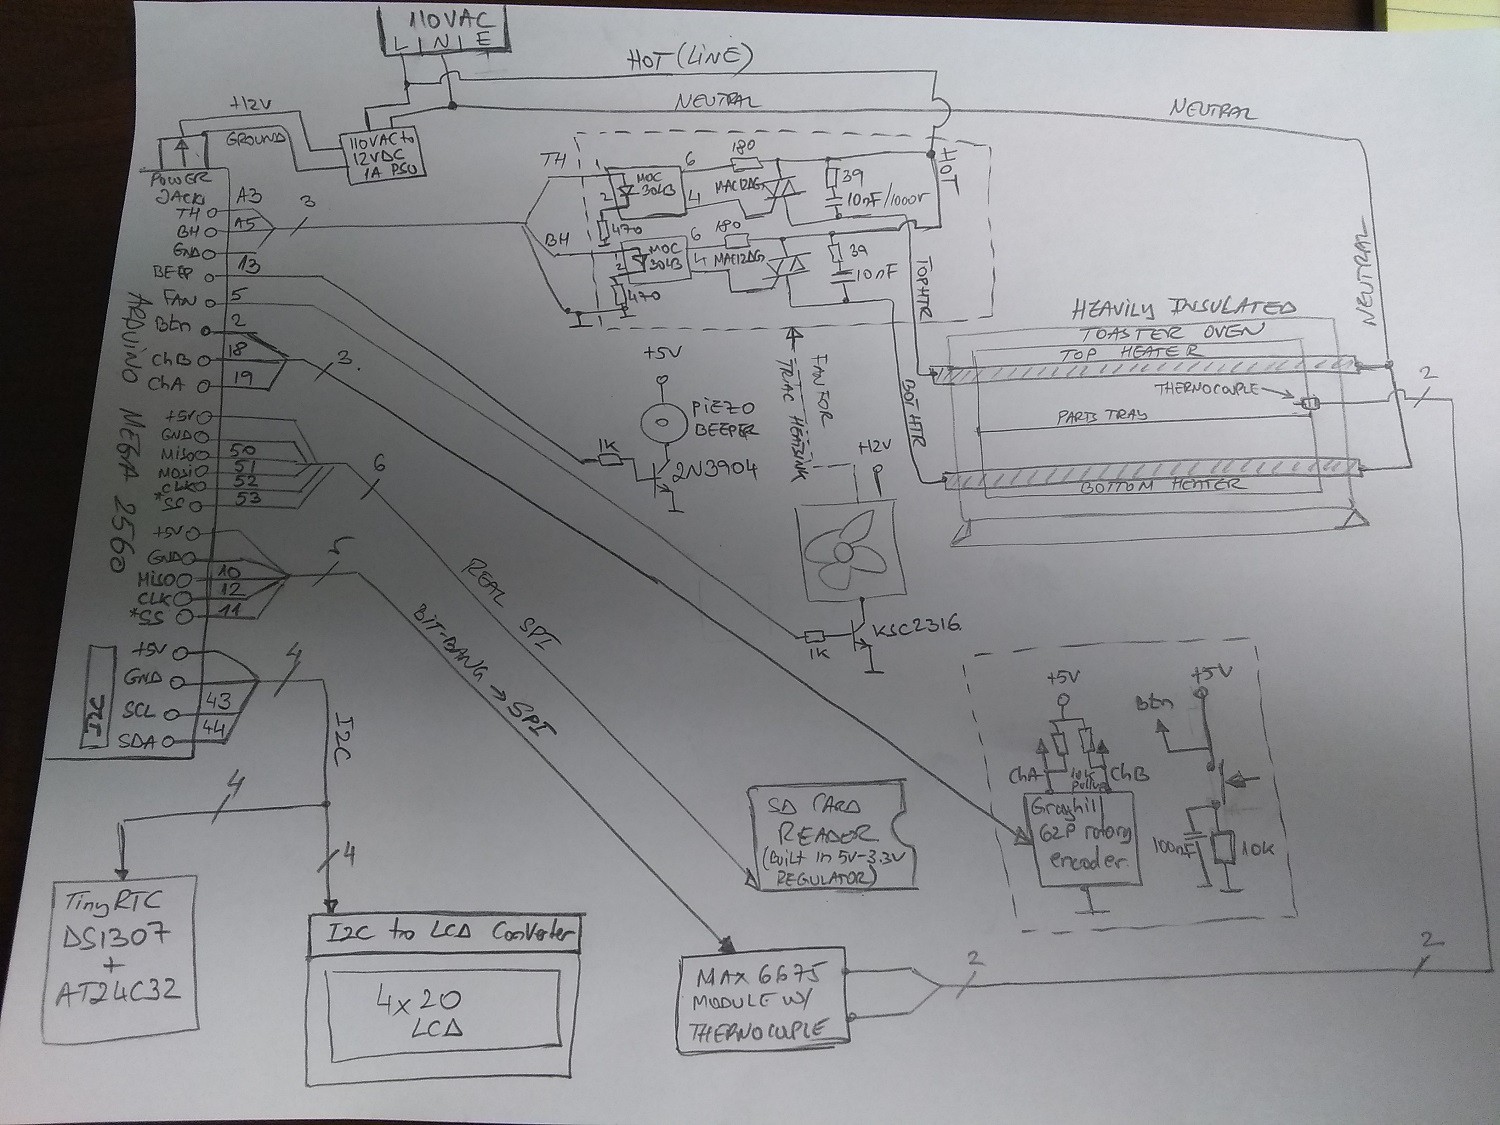 110VAC
L | N | E
HOT (LINE)
NEUTRAL
NEUTRAL
+12V
GROUND
110VAC to
12VDC
1A PSU
POWER
JACK
TH A3
BH A5
GND
BEEP 13
FAN 5
Btn 2
ChB 18
ChA 19
+5V
GND
MISO 50
MOSI 51
CLK 52
*SS 53
+5V
GND
MISO 10
CLK 12
*SS 11
+5V
GND
SCL 43
SDA 44
I2C
ARDUINO MEGA 2560
3
3.
6
5
4
TH
BH
1
2
MOC
3043
6
4
180
MAC12DG
39
10nF/1000V
470
1
2
MOC
3043
6
4
180
MAC12DG
39
10nF
470
HOT
TOP HTR
BOT HTR
NEUTRAL
HEAVILY INSULATED
TOASTER OVEN
TOP HEATER
THERMOCOUPLE
PARTS TRAY
BOTTOM HEATER
2
+5V
PIEZO
BEEPER
1K
2N3904
FAN FOR
TRIAC HEATSINK
+12V
KSC2316
1K
REAL SPI
BIT-BANG → SPI
I2C
4
4
TinyRTC
DS1307
+
AT24C32
I2C to LCD Converter
4x20
LCD
SD CARD
READER
(Built in 5V-3.3V
REGULATOR)
MAX6675
MODULE W/
THERMOCOUPLE
2
2
+5V
ChA
10K
Pullup
ChB
Grayhill
62P rotary
encoder
Btn
+5V
100nF
10K